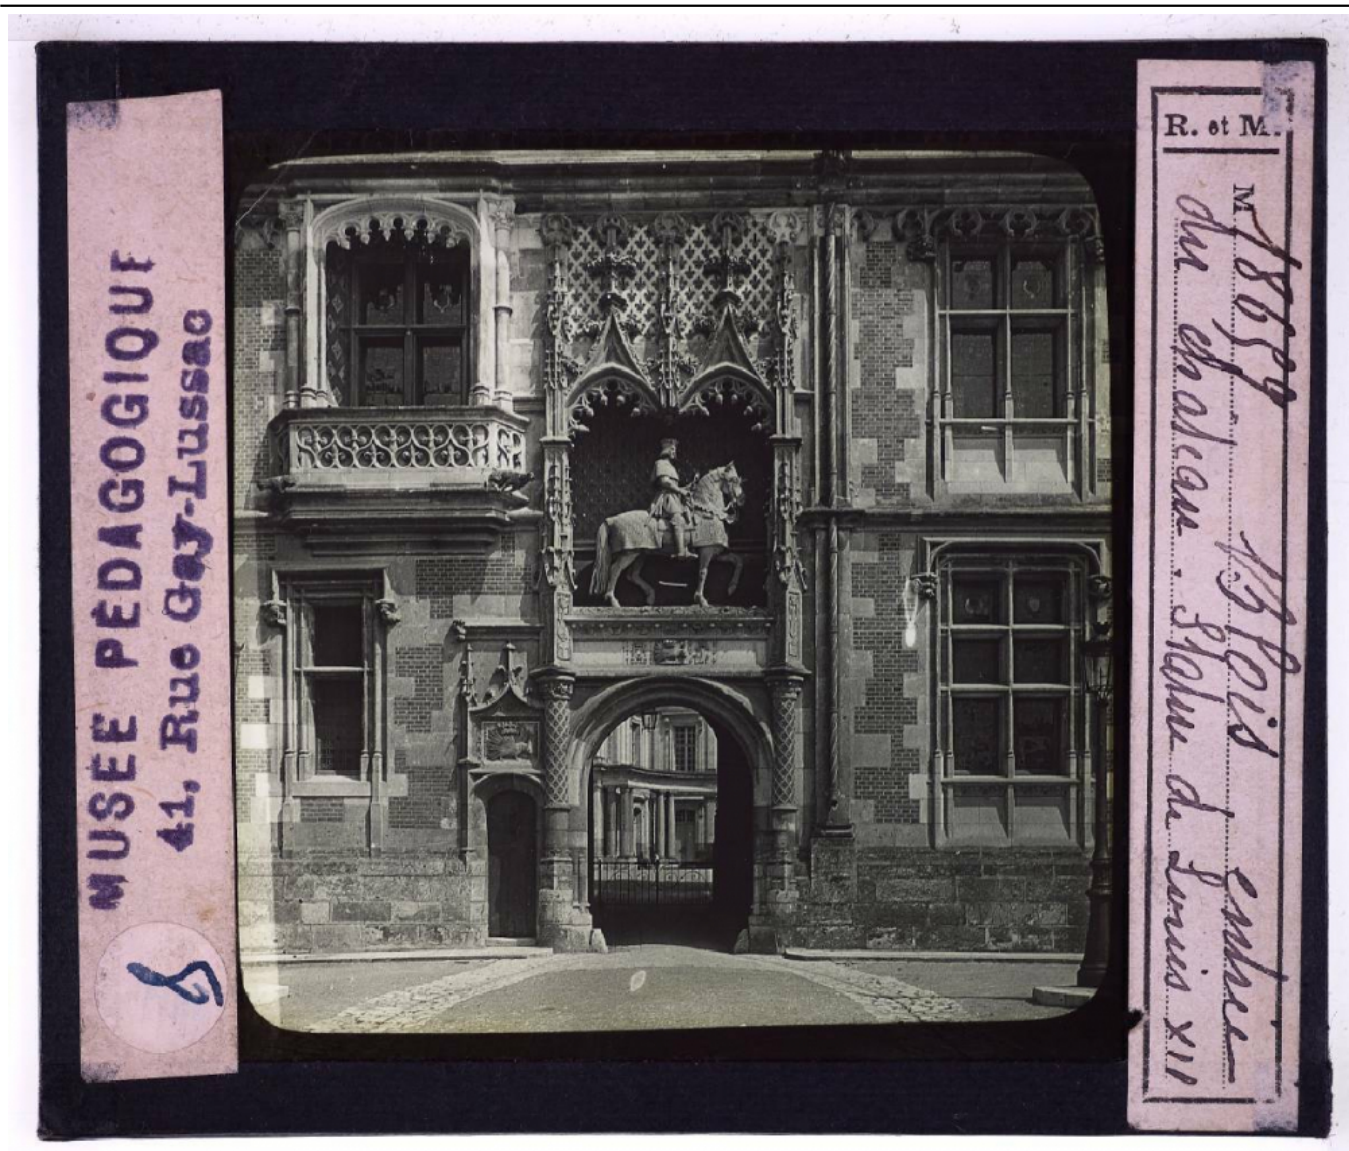 MUSÉE PÉDAGOGIQUE
41, Rue Gay-Lussac
8
R. et M.
M 18659 Blois entrée
du chateau. Statue de Louis XII